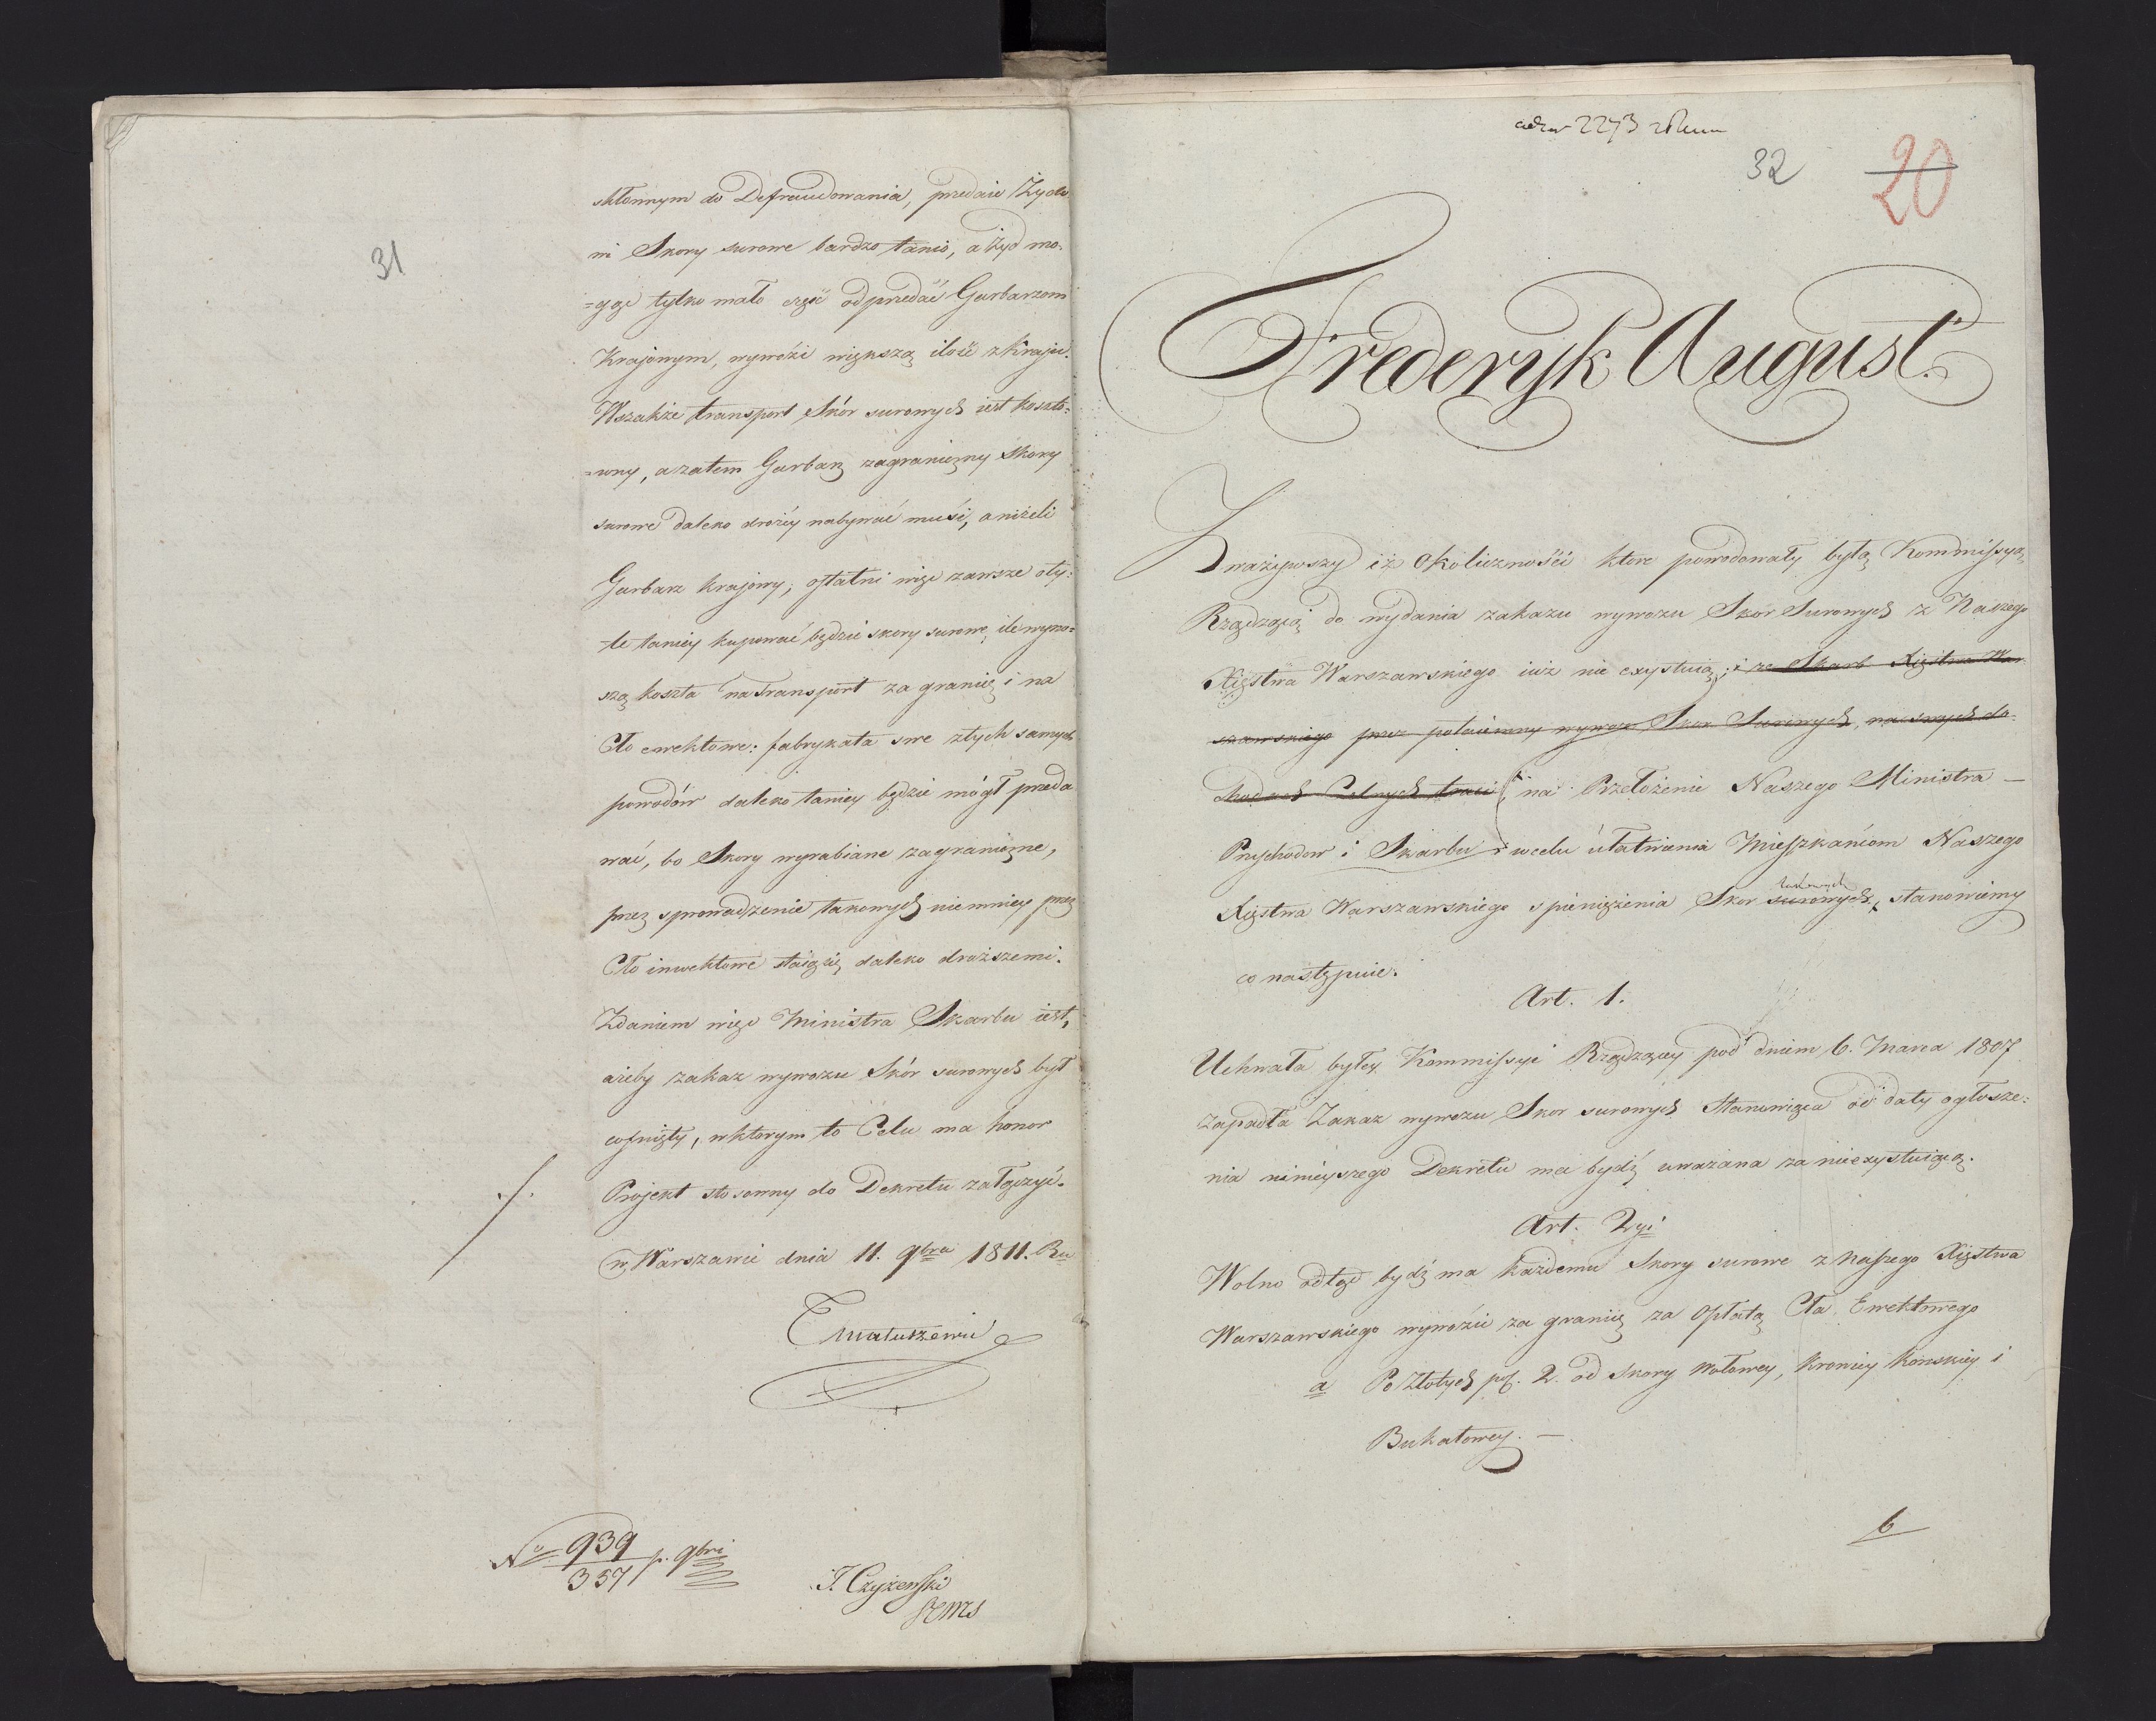 31
skłonnym do Defraudowania, przedaie Żydo
wi Skory surowe bardzo tanio, a Żyd mo-
=gąc tylko mało część odprzedać Garbarzom
Krajowym, wywozi większą ilość z kraju.
Wszakże transport Skór surowych iest koszto=
=wny, a zatem Garbarz zagraniczny Skory
surowe daleko drożéy nabywać musi, aniżeli
Garbarz krajowy; ostatni więc zawsze oty:
-le taniey kupować będzie skory surowe, ile wyno=
szą koszta na Transport za granicę i na
Cło ewektowe: fabrykata swe ztych samych
powodów daleko taniey będzie mógł przeda
wać, bo Skory wyrabiane zagraniczne,
przez sprowadzenie takowych niemniey przez
Cło inwektowe staią się daleko droższemi.
Zdaniem więc Ministra Skarbu iest,
ażeby zakaz wywozu Skór surowych był
cofnięty, w ktorym to Celu ma honor
Projekt stosowny do Dekretu załączyć.
w Warszawie dnia 11. 9bra 1811. Ru
TMatuszewic
No 939/357 p. 9bri
J. Czyżewski
32
20
Frederyk August.
Zważywszy iż okoliczności ktore powodowały byłą Kommissyą
Rządzącą do wydania zakazu wywozu Skór Surowych z Naszego
Xięstwa Warszawskiego iuż nie exystuią; i ze Skarb Xięstwa War
szawskiego przez potaiemny wywoz Skor Surowych, na swych do-
chodach Celnych traci; na Przełożenie Naszego Ministra —
Przychodow i Skarbu i w celu ułatwienia Mieszkańcom Naszego
Xięstwa Warszawskiego spieniężenia Skor surowych takowych, stanowiemy
co następuie.
Art. 1.
Uchwała byłey Kommissyi Rządzącey pod dniem 6. Marca 1807
zapadła Zakaz wywozu Skor surowych Stanowiąca od daty ogłosze:
nia ninieyszego Dekretu ma bydź uważana za nieexystuiącą.
Art. 2gi
Wolno odtąd bydź ma każdemu Skory surowe z Naszego Xięstwa
Warszawskiego wywozić za granicę za Opłatą Cła Ewektowego
a Po Złotych pol. 2. od Skory Wołowey, Krowiey Konskiey i
Bukatowey. —
b